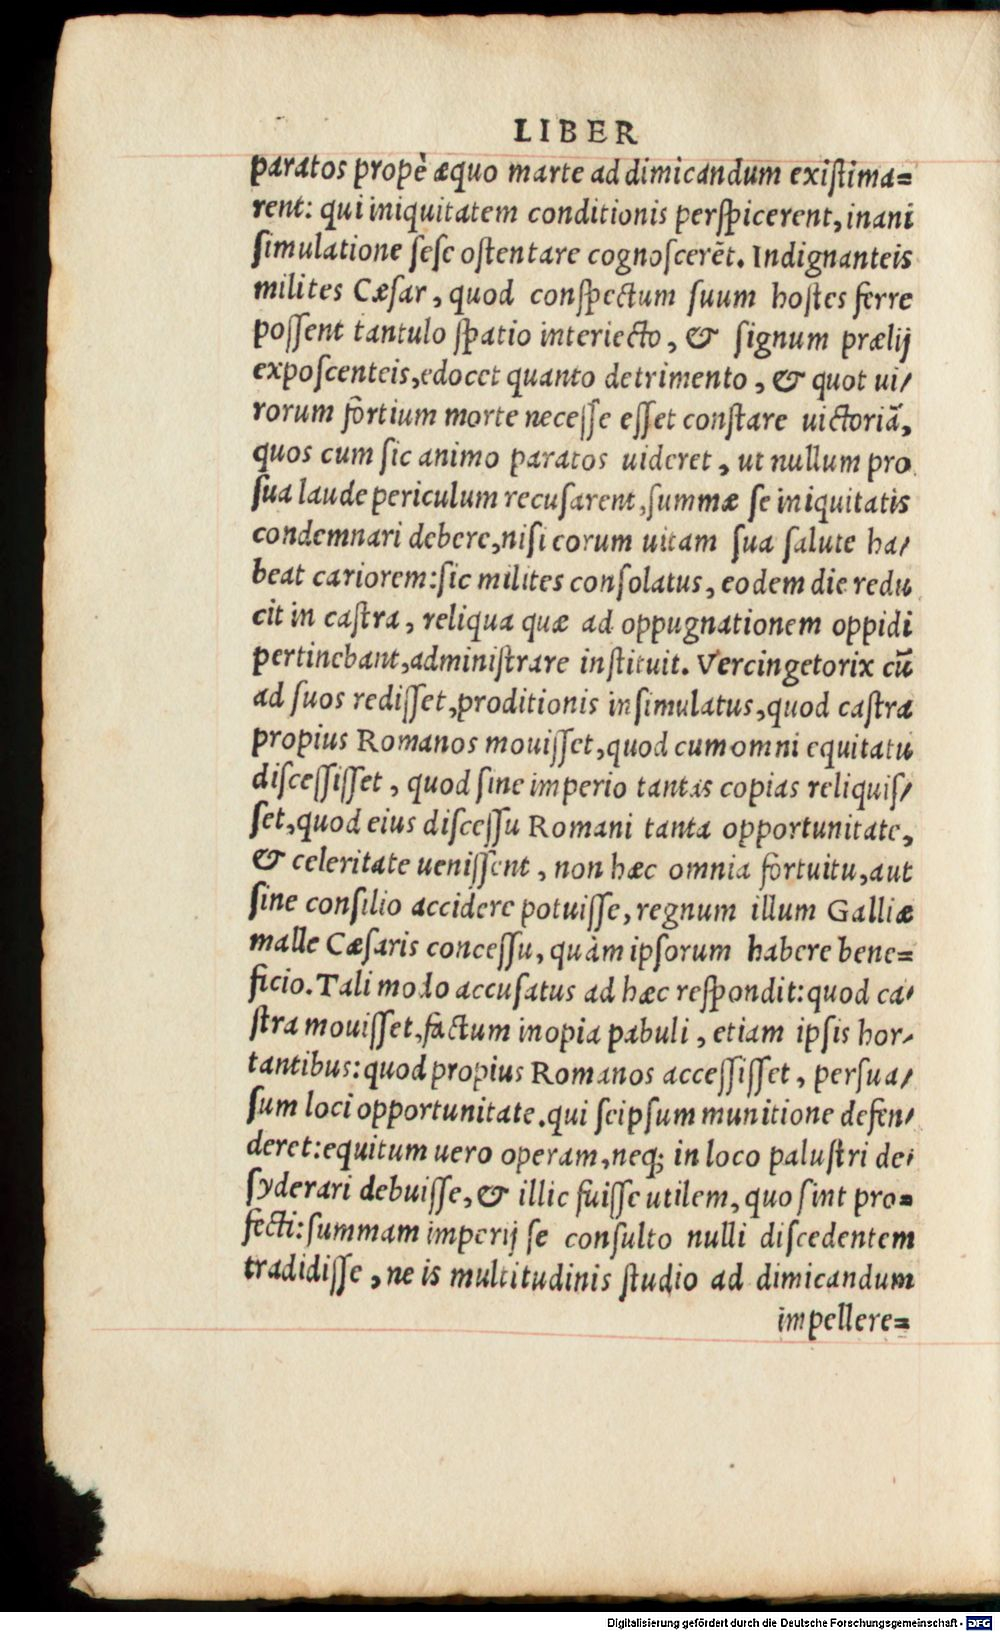 LIBER
paratos propè æquo marte ad dimicandum existima=
rent: qui iniquitatem conditionis perspicerent, inani
simulatione sese ostentare cognoscerẽt. Indignanteis
milites Cæsar, quod conspectum suum hostes ferre
possent tantulo spatio interiecto, & signum prælij
exposcenteis, edocet quanto detrimento, & quot ui/
rorum fortium morte necesse esset constare uictoriã,
quos cum sic animo paratos uideret, ut nullum pro
sua laude periculum recusarent, summæ se iniquitatis
condemnari debere, nisi eorum uitam sua salute ha/
beat cariorem: sic milites consolatus, eodem die redu
cit in castra, reliqua quæ ad oppugnationem oppidi
pertinebant, administrare instituit. Vercingetorix cũ
ad suos redisset, proditionis insimulatus, quod castra
propius Romanos mouisset, quod cum omni equitatu
discessisset, quod sine imperio tantas copias reliquis/
set, quod eius discessu Romani tanta opportunitate,
& celeritate uenissent, non hæc omnia fortuitu, aut
sine consilio accidere potuisse, regnum illum Galliæ
malle Cæsaris concessu, quàm ipsorum habere bene=
ficio. Tali modo accusatus ad hæc respondit: quod ca/
stra mouisset, factum inopia pabuli, etiam ipsis hor/
tantibus: quod propius Romanos accessisset, persua/
sum loci opportunitate. qui seipsum munitione defen/
deret: equitum uero operam, neq; in loco palustri de/
syderari debuisse, & illic fuisse utilem, quo sint pro=
fecti: summam imperij se consulto nulli discedentem
tradidisse, ne is multitudinis studio ad dimicandum
impellere=
Digitalisierung gefördert durch die Deutsche Forschungsgemeinschaft - DFG